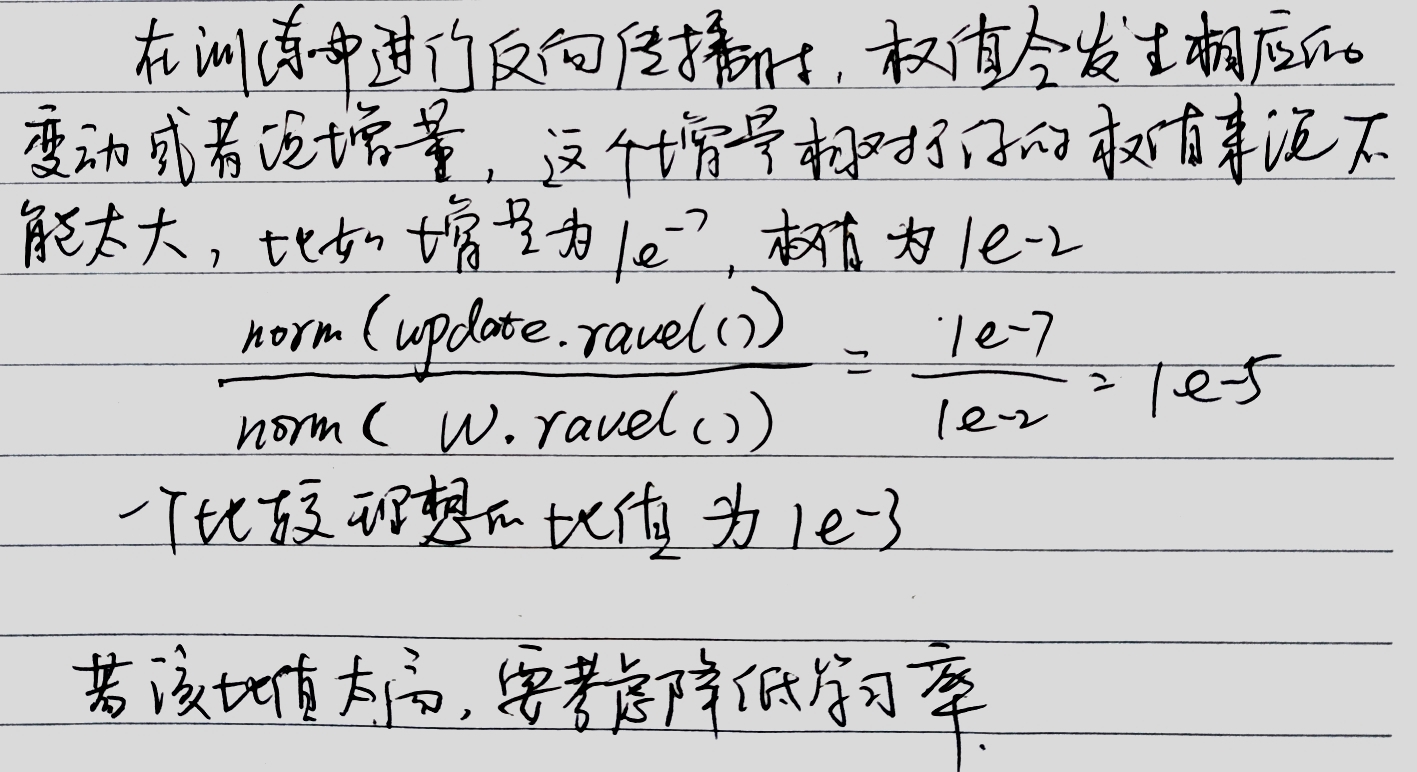 在训练中进行反向传播时，权值会发生相应的
变动或者说增量，这个增量相对于原的权值来说不
能太大，比如增量为1e-7，权值为1e-2
norm(update.ravel()) / norm(W.ravel()) = 1e-7 / 1e-2 = 1e-5
一个比较理想的比值为1e-3
若该比值太高，要考虑降低学习率.